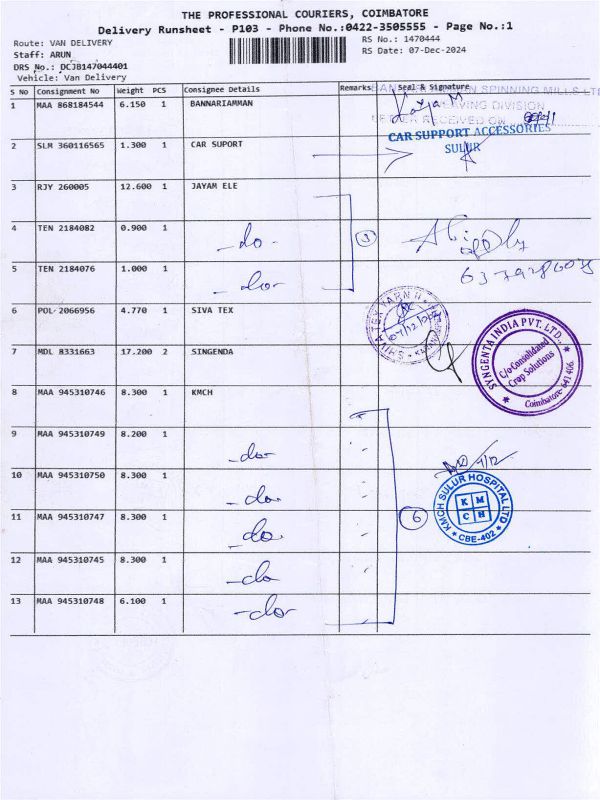 THE PROFESSIONAL COURIERS, COIMBATORE
Delivery Runsheet - P103 - Phone No.:0422-3505555 - Page No.:1
Route: VAN DELIVERY
RS No.: 1470444
Staff: ARUN
RS Date: 07-Dec-2024
DRS No.: DCJB147044401
Vehicle: Van Delivery
S No Consignment No Weight PCS Consignee Details Remarks Seal & Signature
1 MAA 868184544 6.150 1 BANNARIAMMAN
SPINNING MILLS LTD
WEAVING DIVISION
RECEIVED ON
2 SLM 360116565 1.300 1 CAR SUPORT
CAR SUPPORT ACCESSORIES
SULUR
3 RJY 260005 12.600 1 JAYAM ELE
4 TEN 2184082 0.900 1 -do-
3
5 TEN 2184076 1.000 1 -do-
6 POL 2066956 4.770 1 SIVA TEX
SHIVA TEX YARN
7 MDL 8331663 17.200 2 SINGENDA
SYNGENTA INDIA PVT. LTD.,
C/o Consolidated
Crop Solutions
Coimbatore- 641 406.
8 MAA 945310746 8.300 1 KMCH
9 MAA 945310749 8.200 1 -do-
10 MAA 945310750 8.300 1 -do-
KMCH SULUR HOSPITAL LTD
K M
C H
CBE-402
11 MAA 945310747 8.300 1 -do-
6
12 MAA 945310745 8.300 1 -do-
13 MAA 945310748 6.100 1 -do-